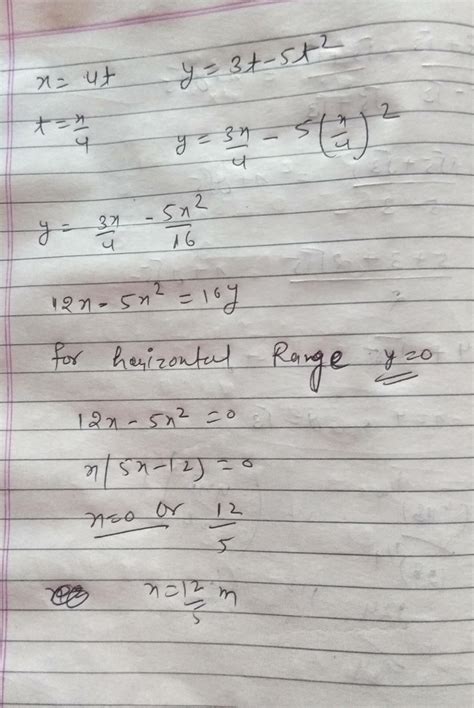 x = 4t y = 3t - 5t²
t = x/4 y = 3x/4 - 5(x/4)²
y = 3x/4 - 5x²/16
12x - 5x² = 16y
for horizontal Range y=0
12x - 5x² = 0
x(5x-12) = 0
x=0 or 12/5
x = 12/5 m